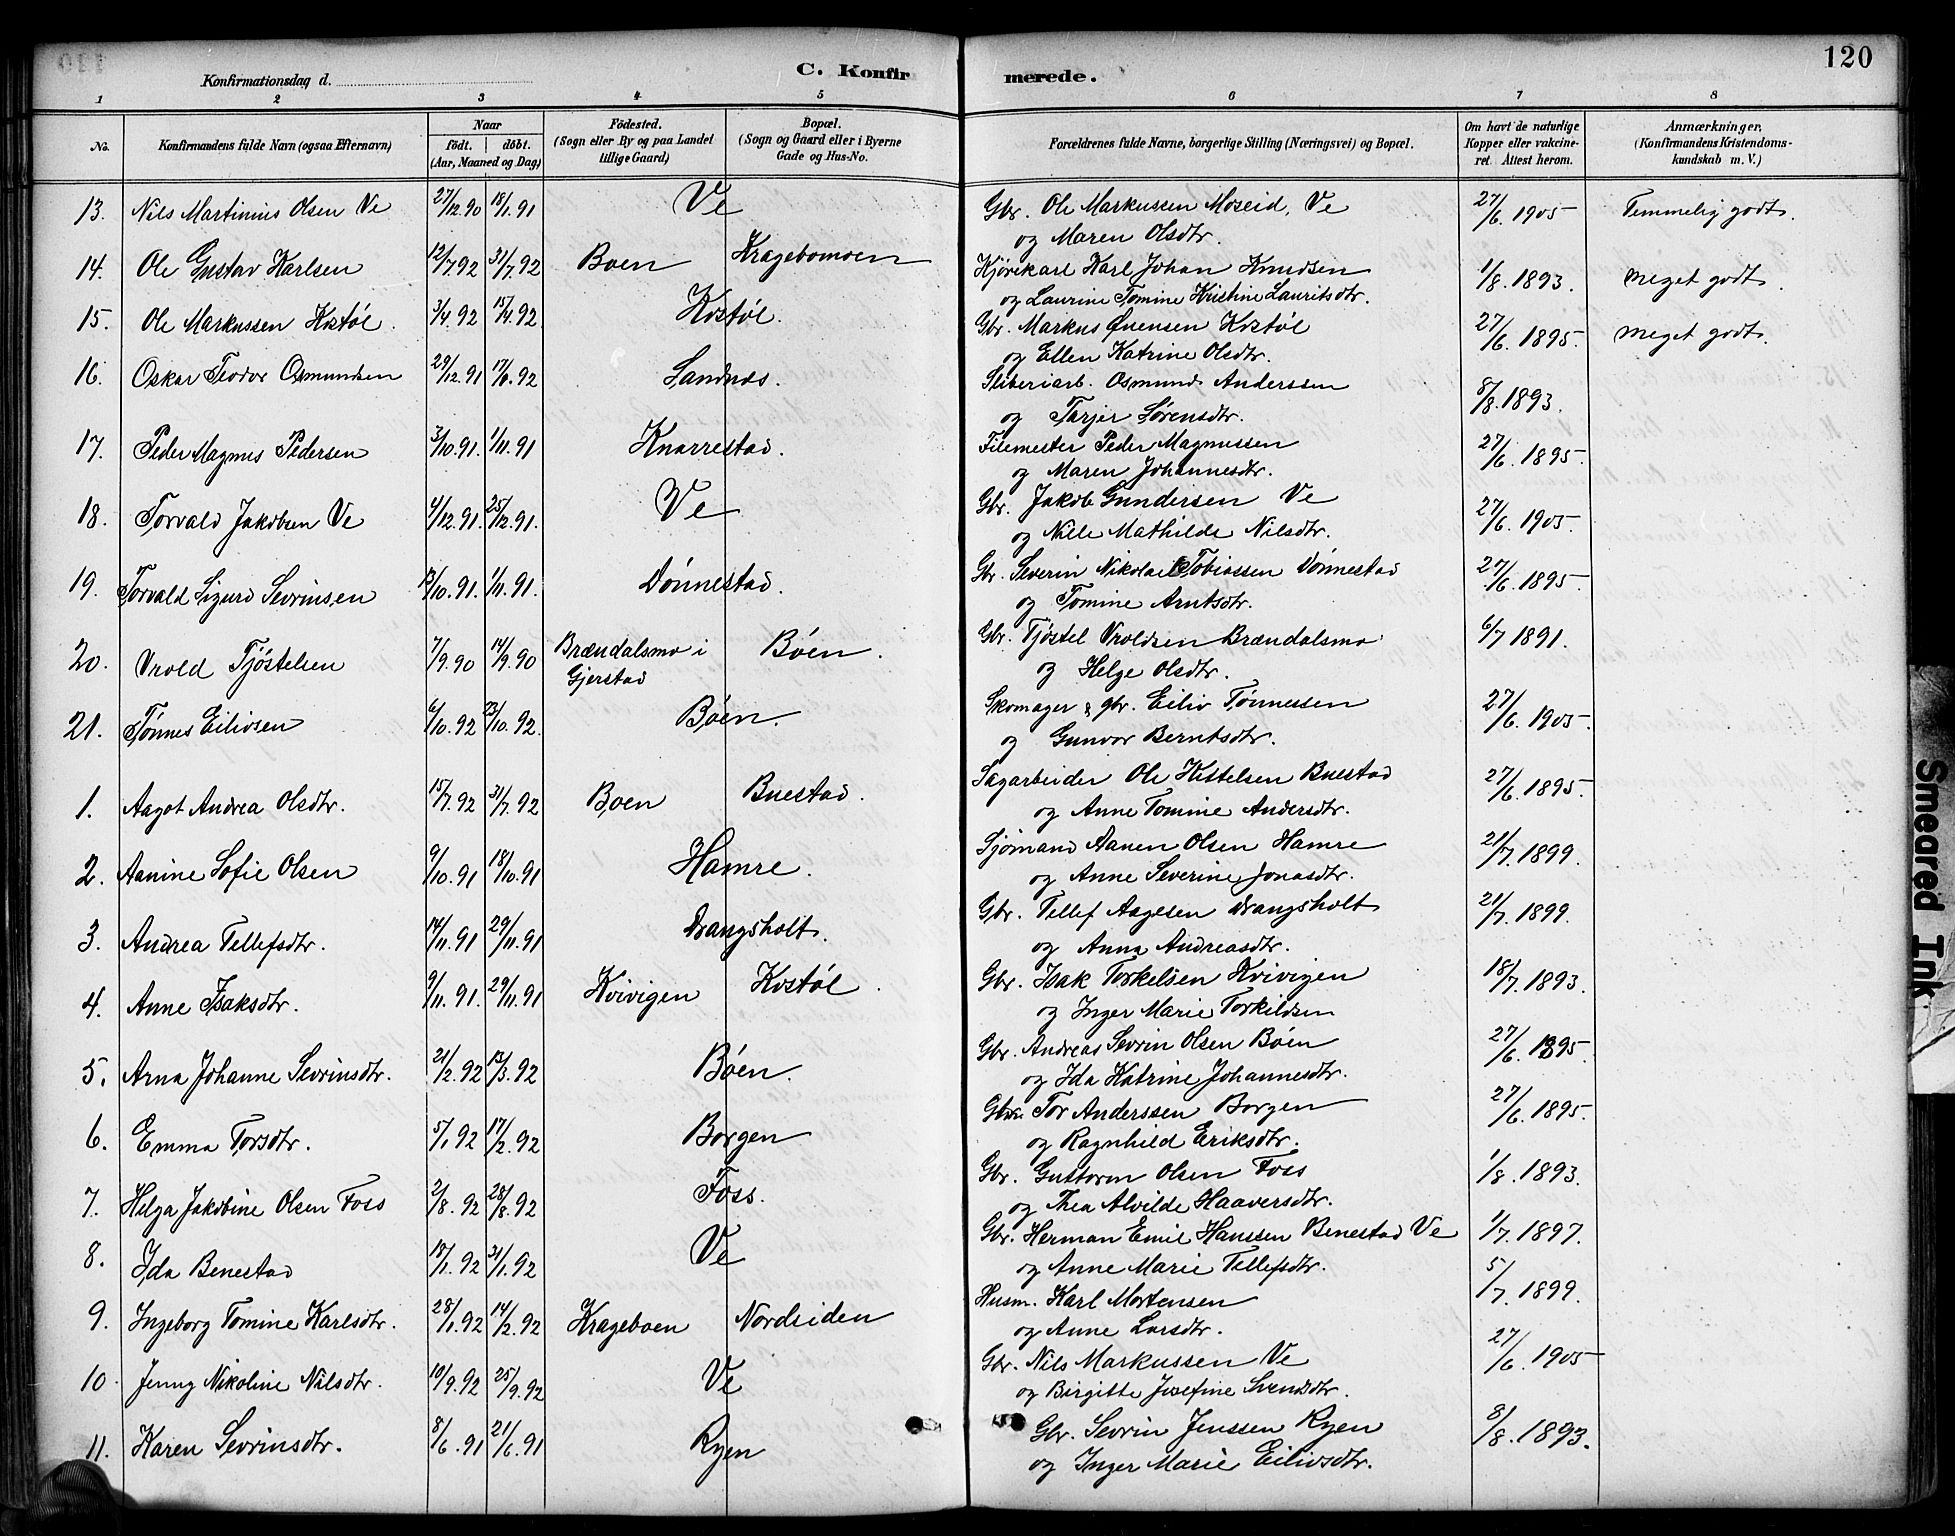 120
Konfirmationsdag d.
C. Konfirmerede.
1 2 3 4 5 6 7 8
No. Konfirmandens fulde Navn (ogsaa Efternavn) Naar født. døbt. (Aar, Maaned og Dag) Fødested. (Sogn eller By og paa Landet tillige Gaard) Bopæl. (Sogn og Gaard eller i Byerne Gade og Hus-No. Forældrenes fulde Navne, borgerlige Stilling (Næringsvei) og Bopæl. Om havt de naturlige Kopper eller vakcineret. Attest herom. Anmærkninger. (Konfirmandens Kristendomskundskab m. V.)
13. Nils Martinius Olsen Ve 27/12.90 18/1.91 Ve Gbr. Ole Markussen Moseid, Ve 27/6 1905 Temmelig godt.
og Maren Olsdtr.
14. Ole Gustav Karlsen 12/7 92 31/7.92 Boen Kragebomoen Kjørekarl Karl Johan Knudsen 1/8.1893. meget godt.
og Laurine Tomine Kristine Lauritsdtr.
15. Ole Markussen Kostøl. 3/4.92 15/4.92. Kostøl. Gbr. Markus Ønensen Kostøl 27/6.1895. meget godt.
og Ellen Katrine Olsdtr.
16. Oskar Teodor Osmundsen 29/12.91 17/6.92 Sandnes. Sliberiarb. Osmund Anderssen 8/8.1893.
og Tarjer Sørensdtr.
17. Peder Magnus Pedersen 3/10.91. 1/11.91 Knarrestad. Filemester Peder Magnussen 27/6.1895.
og Maren Johannesdtr.
18. Torvald Jakobsen Ve 4/12.91. 25/12.91. Ve Gbr. Jakob Gundersen Ve 27/6.1905.
og Nille Mathilde Nilsdtr.
19. Torvald Sigurd Sevrinsen 13/10.91. 1/11.91. Dønnestad. Gbr. Severin Nikolai Tobiassen Dønnestad 27/6.1895.
og Tomine Arntsdtr.
20. Vrold Tjøstelsen 7/9.90 14/9.90 Brændalsmo i Gjerstad Bøen. Gbr. Tjøstel Vroldsen Brændalsmo 6/7 1891.
og Helge Olsdtr.
21. Tønnes Eilivsen 6/10.92 23/10.92. Bøen. Skomager & gbr. Eiliv Tønnessen 27/6.1905
og Gunvor Berntsdtr.
1. Aagot Andrea Olsdtr. 15/7.92 31/7.92 Boen Buestad. Sagarbeider Ole Kittelsen Buestad 27/6.1895.
og Anne Tomine Andersdtr.
2. Aanine Sofie Olsen 9/10.91 18/10.91 Hamre. Sjømand Aanen Olsen Hamre 21/7.1899.
og Anne Severine Jonasdtr.
3. Andrea Tellefsdtr. 14/11.91 29/11.91 Drangsholt. Gbr. Tellef Aagesen Drangsholt 21/7.1899.
og Anna Andreasdtr.
4. Anne Isaksdtr. 9/11.91. 29/11.91 Kvivigen Kostøl. Gbr. Isak Torkelsen Kvivigen 18/7.1893.
og Inger Marie Torkildsen
5. Arna Johanne Sevrinsdtr. 21/2.92 13/3.92 Bøen. Gbr. Andreas Sevrin Olsen Bøen 27/6.1895.
og Ida Katrine Johannesdtr.
6. Emma Torsdtr. 5/1.92 17/2.92 Borgen Gbr. Tor Anderssen Borgen 27/6.1895.
og Ragnhild Eriksdtr.
7. Helga Jakobine Olsen Foss 2/8.92 28/8.92 Foss. Gbr. Guttorm Olsen Foss 1/8.1893.
og Thea Alvilde Haaversdtr.
8. Ida Benestad 18/1.92 31/1.92 Ve Gbr. Herman Emil Hanssen Benestad Ve 1/7.1897.
og Anne Marie Tellefsdtr.
9. Ingeborg Tomine Karlsdtr. 28/1.92 14/2.92 Krageboen Nordsiden Husm. Karl Mortensen 5/7.1899.
og Anne Larsdtr.
10. Jenny Nikoline Nilsdtr. 10/9.92 25/9.92 Ve Gbr. Nils Markussen Ve 27/6.1905
og Birgitte Josefine Svendsdtr.
11. Karen Sevrinsdtr. 8/6.91 21/6.91 Ryen Gbr. Sevrin Jenssen Ryen 8/8.1893.
og Inger Marie Eilivsdtr.
Smeared Ink